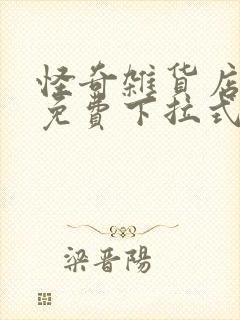 怪奇雜貨店
免費下拉式
梁晋陽